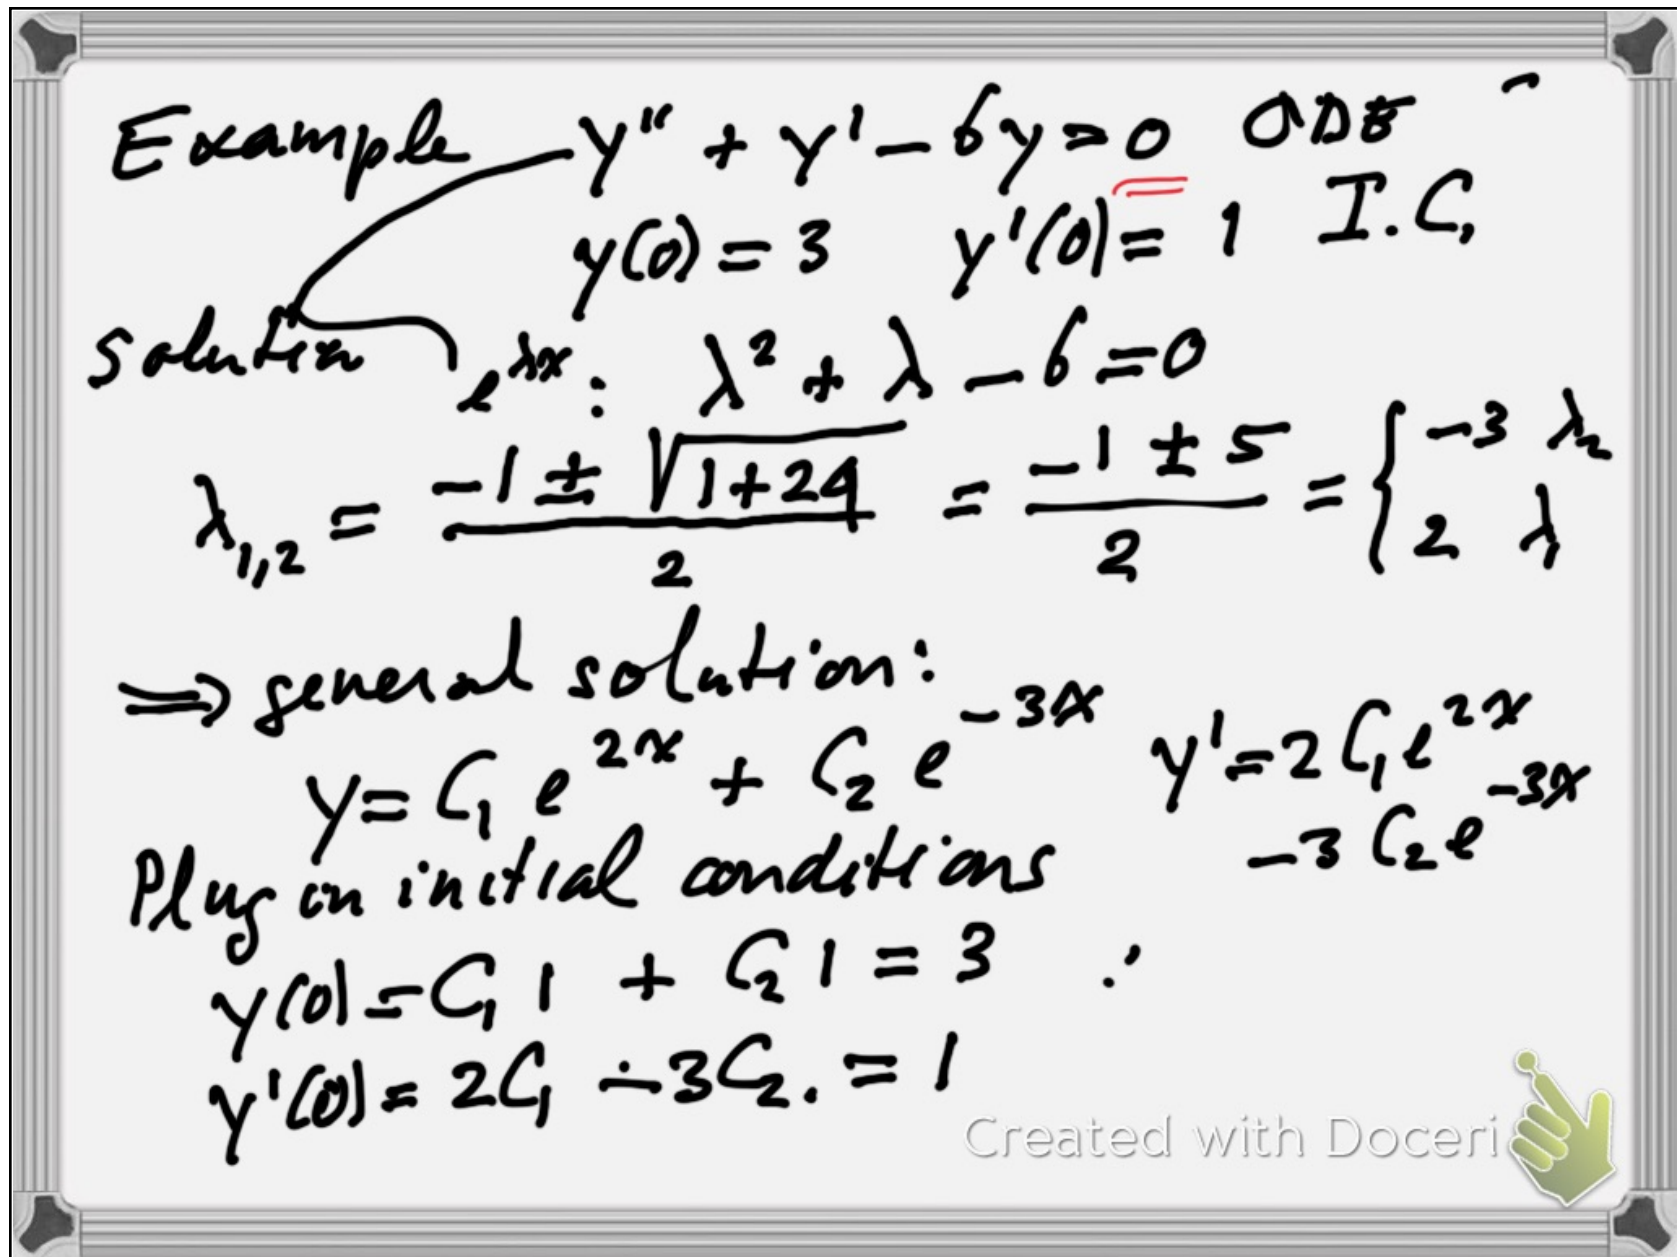 Example y'' + y' - 6y = 0 ODE
y(0) = 3 y'(0) = 1 I.C.
Solution e^{λx}: λ² + λ - 6 = 0
λ_{1,2} = \frac{-1 ± \sqrt{1+24}}{2} = \frac{-1 ± 5}{2} = { -3 λ₂
2 λ₁
⟹ general solution:
y = C₁ e^{2x} + C₂ e^{-3x} y' = 2 C₁ e^{2x}
-3 C₂ e^{-3x}
Plug in initial conditions
y(0) = C₁ 1 + C₂ 1 = 3
y'(0) = 2C₁ - 3C₂ = 1
Created with Doceri